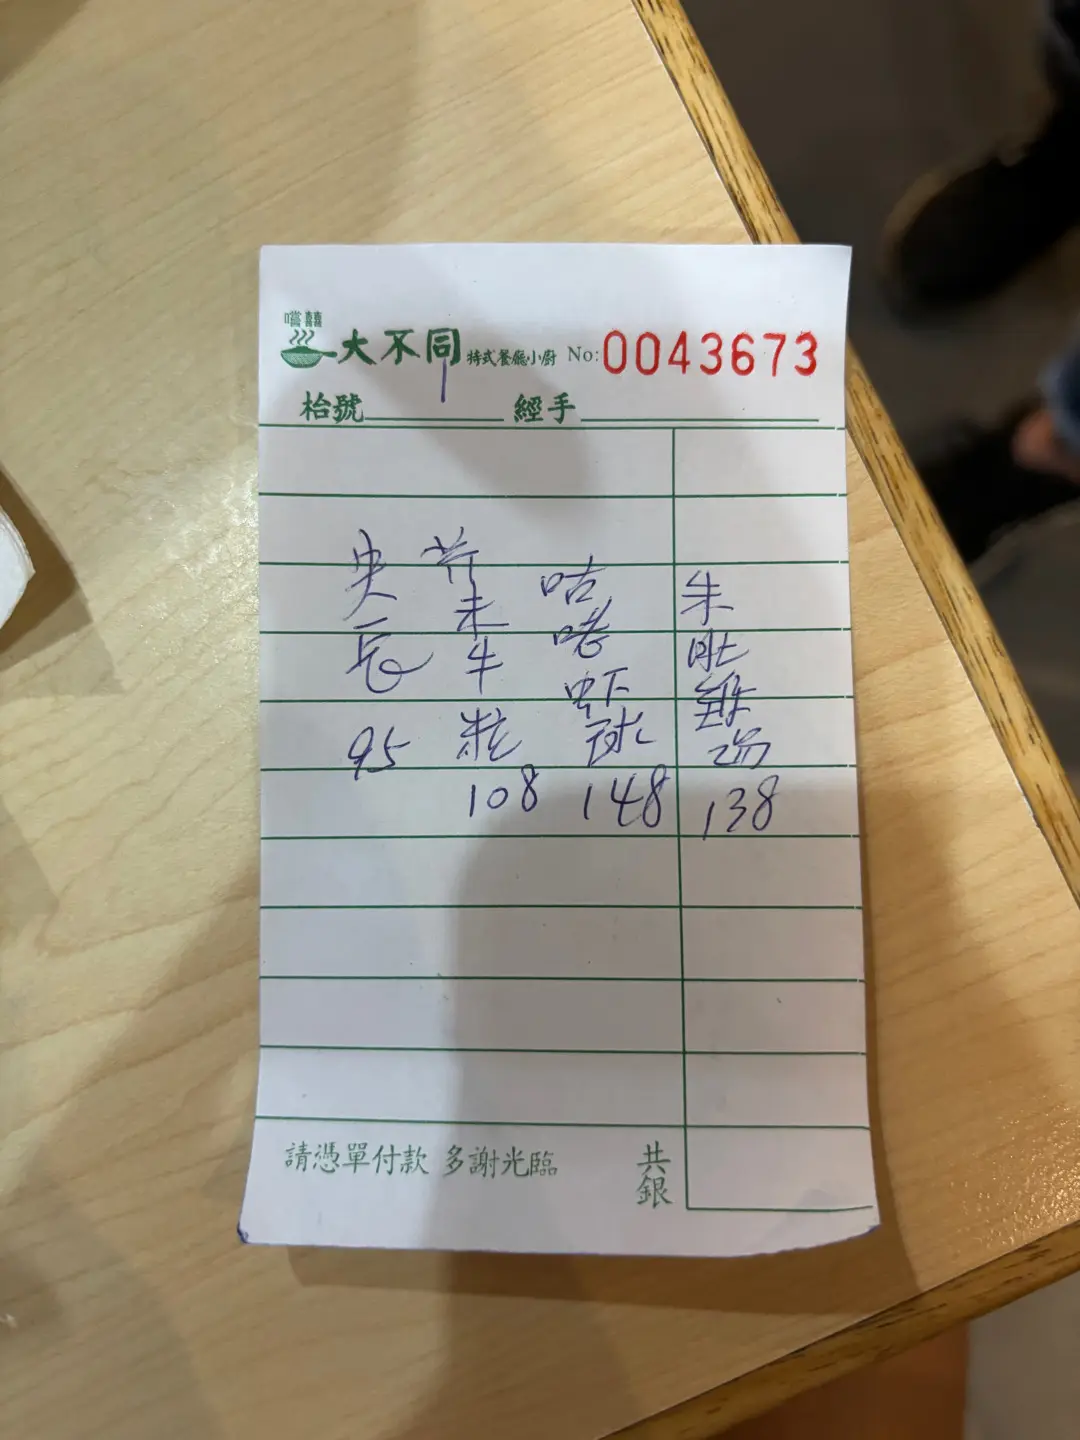 噹囍
大不同 特式餐廳小廚 No: 0043673
枱號 經手
朱肚雞湯
138
咕咾虾球
148
芥末牛粒
108
95
請憑單付款 多謝光臨
共銀